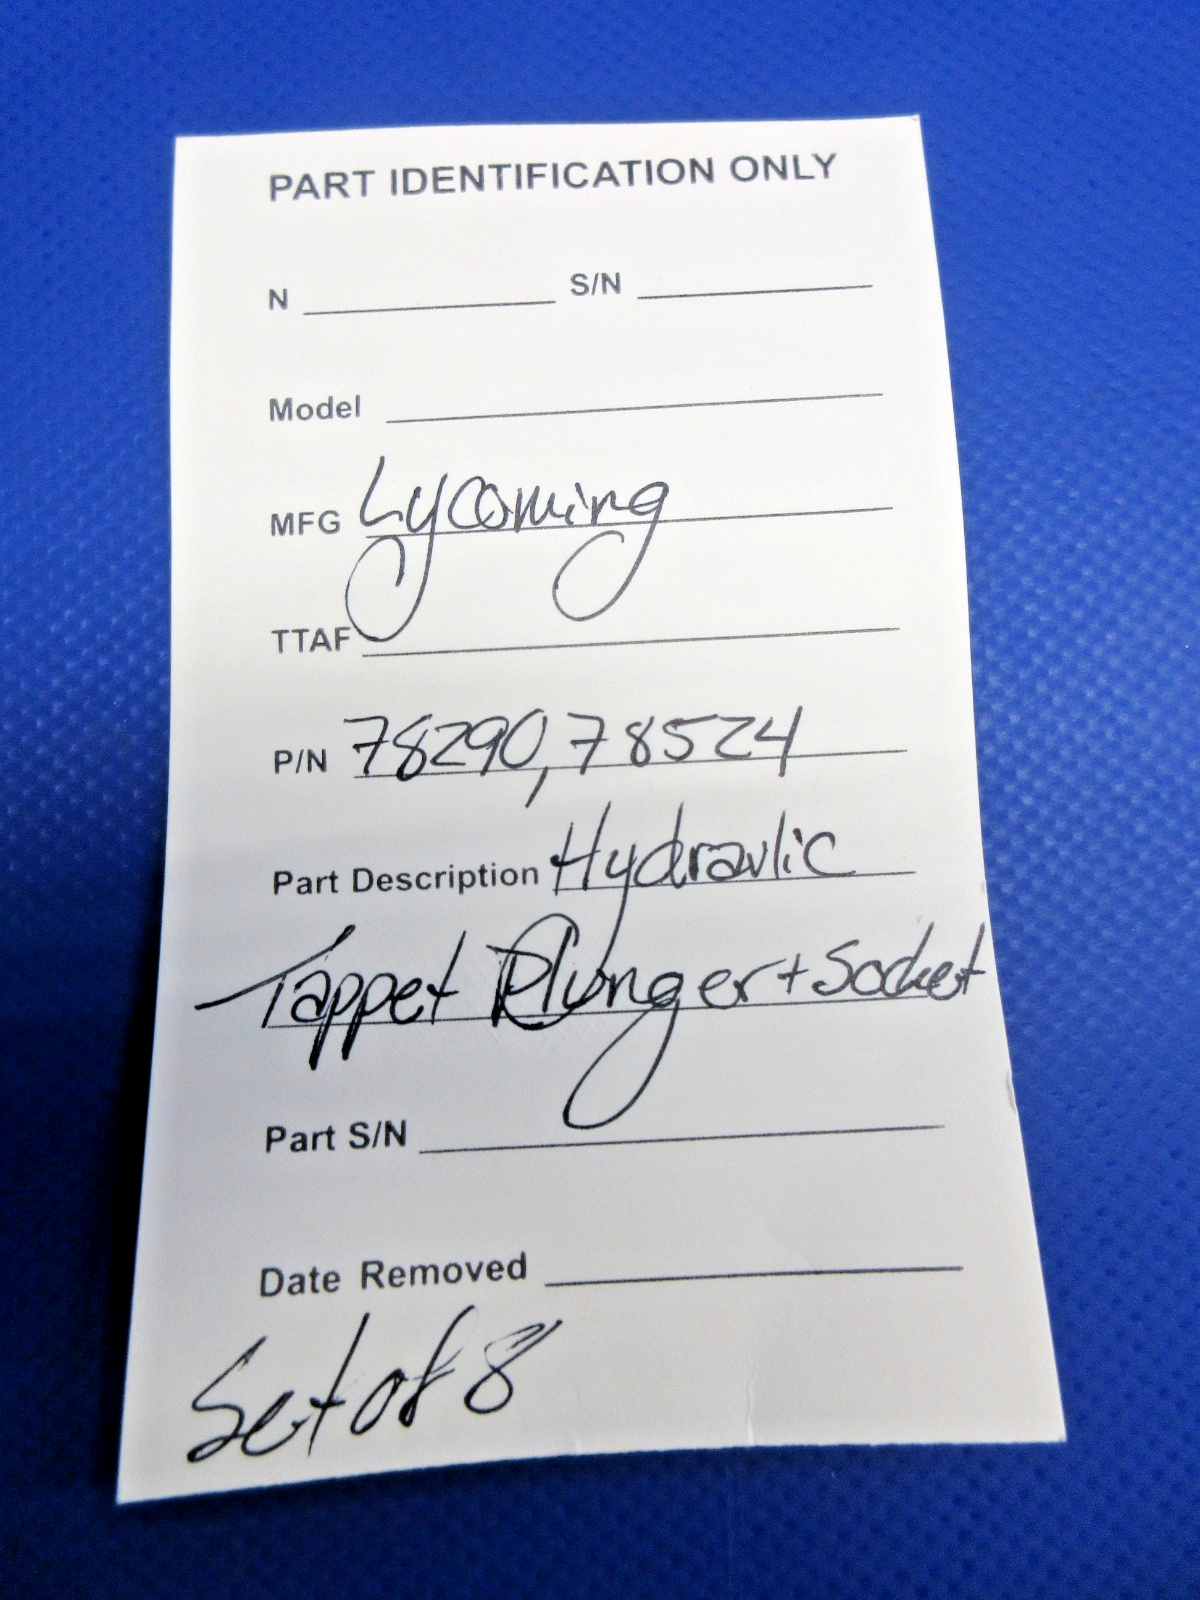 PART IDENTIFICATION ONLY
N S/N
Model
MFG Lycoming
TTAF
P/N 78290, 78524
Part Description Hydraulic
Tappet Plunger + Socket
Part S/N
Date Removed
Set of 8